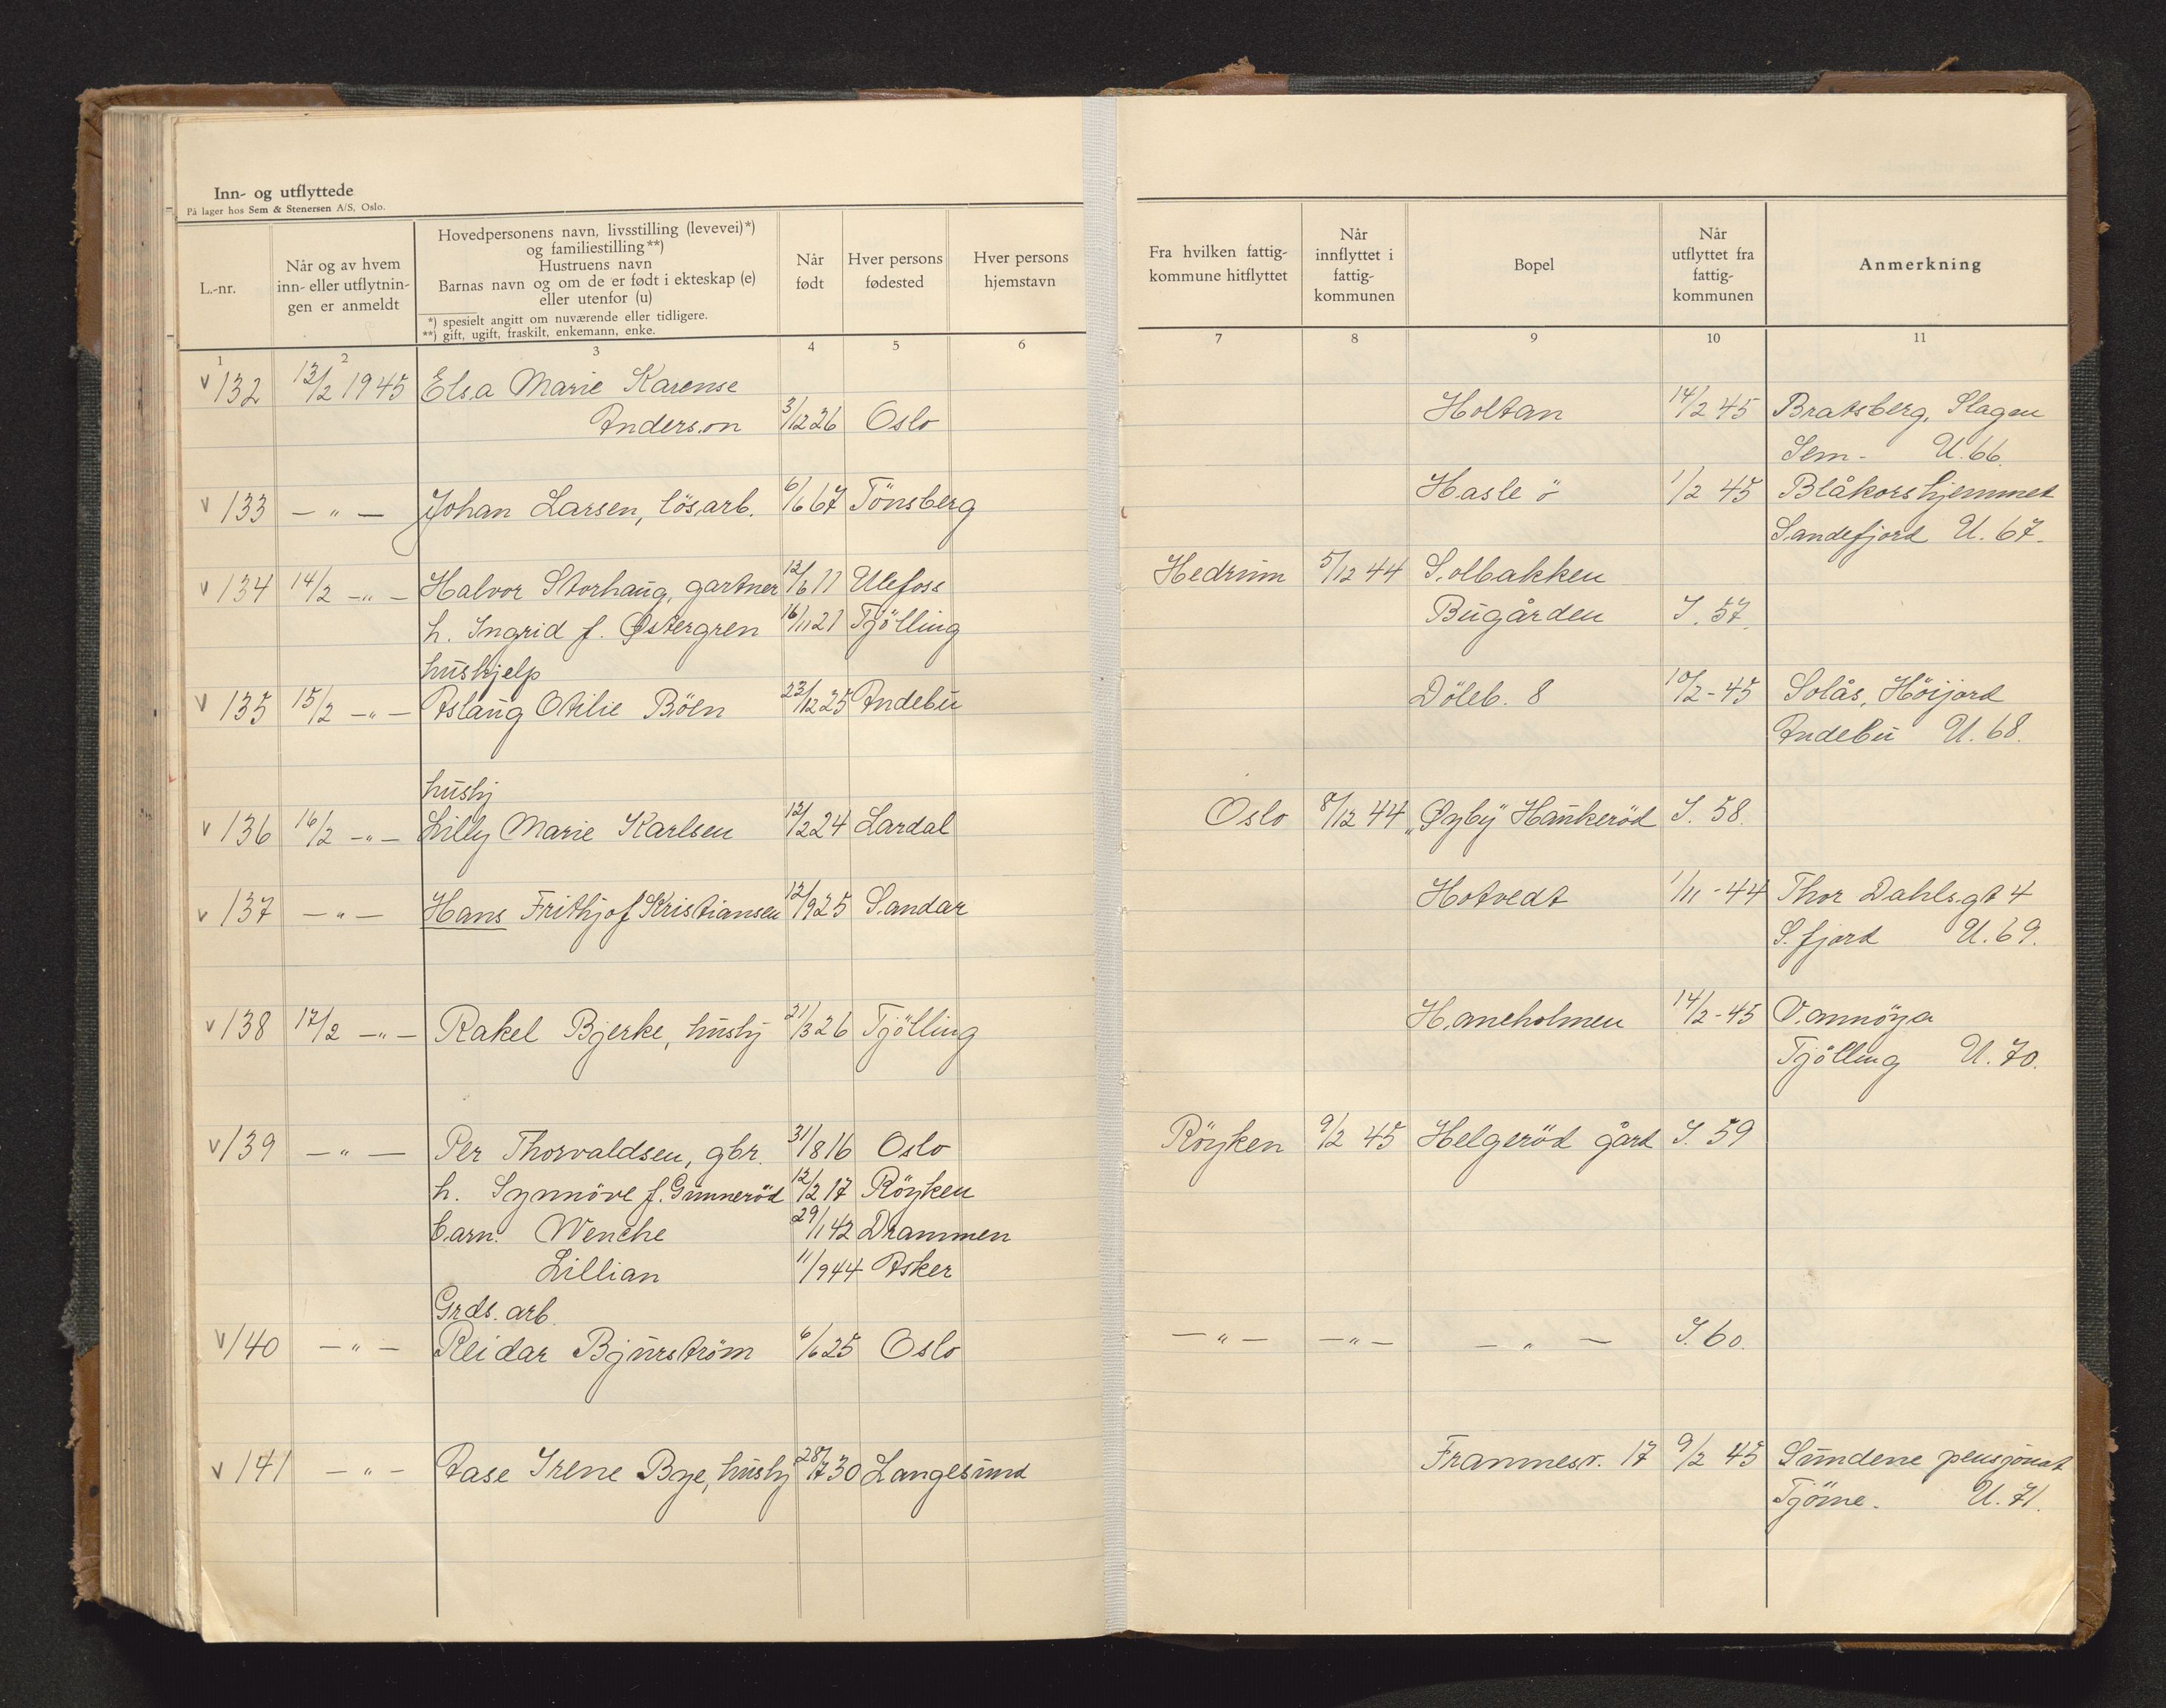 Inn- og utflyttede
På lager hos Sem & Stenersen A/S, Oslo.
L.-nr.
Når og av hvem inn- eller utflytnin- gen er anmeldt
Hovedpersonens navn, livsstilling (levevei)*)
og familiestilling**)
Hustruens navn
Barnas navn og om de er født i ekteskap (e)
eller utenfor (u)
*) spesielt angitt om nuværende eller tidligere.
**) gift, ugift, fraskilt, enkemann, enke.
Når født
Hver persons fødested
Hver persons hjemstavn
Fra hvilken fattig- kommune hitflyttet
Når innflyttet i fattig- kommunen
Bopel
Når utflyttet fra fattig- kommunen
Anmerkning
1 2 3 4 5 6 7 8 9 10 11
v 132 13/2 1945 Elsa Marie Karense
Anderson 3/12 26 Oslo Holtan 14/2 45 Bratsberg, Slagen
Sem - U. 66.
v 133 — " — Johan Larsen, lös.arb. 6/6 67 Tönsberg Hasle ö 1/2 45 Blåkorshjemmet
Sandefjord U. 67.
v 134 14/2 — " — Halvor Storhaug, gartner 12/6 11 Ulefoss Hedrum 5/12 44 Solbakken
h. Ingrid f. Østergren 16/11 21 Tjölling Bugården I. 57.
hushjelp
v 135 15/2 — " — Aslaug Otilie Böen 23/12 25 Andebu Döleb. 8 10/2 - 45 Solås, Höijord
Andebu U. 68.
hushj
v 136 16/2 — " — Lilly Marie Karlsen 12/2 24 Lardal Oslo 8/12 44 "Øgby" Haukeröd I. 58.
v 137 — " — Hans Frithjof Kristiansen 12/9 25 Sandar Hotvedt 1/11 - 44 Thor Dahls.gt 4
S. fjord U. 69.
v 138 17/2 — " — Rakel Bjerke, hushj 21/3 26 Tjölling Haneholmen 14/2 - 45 Vannöya
Tjölling U. 70.
v 139 — " — Per Thorvaldsen, gbr. 31/8 16 Oslo Röyken 9/2 45 Helgeröd gård I. 59
h. Synnöve f. Gunneröd 12/2 17 Röyken
barn. Wenche 29/1 42 Drammen
Lillian 11/9 44 Asker
Grds. arb.
v 140 — " — Reidar Bjurström 6/6 25 Oslo — " — — " — — " — I. 60.
v 141 — " — Aase Irene Bye, hushj 28/7 30 Langesund Framnesv. 17 9/2 45 Sundene pensjonat
Tjöme. U. 71.